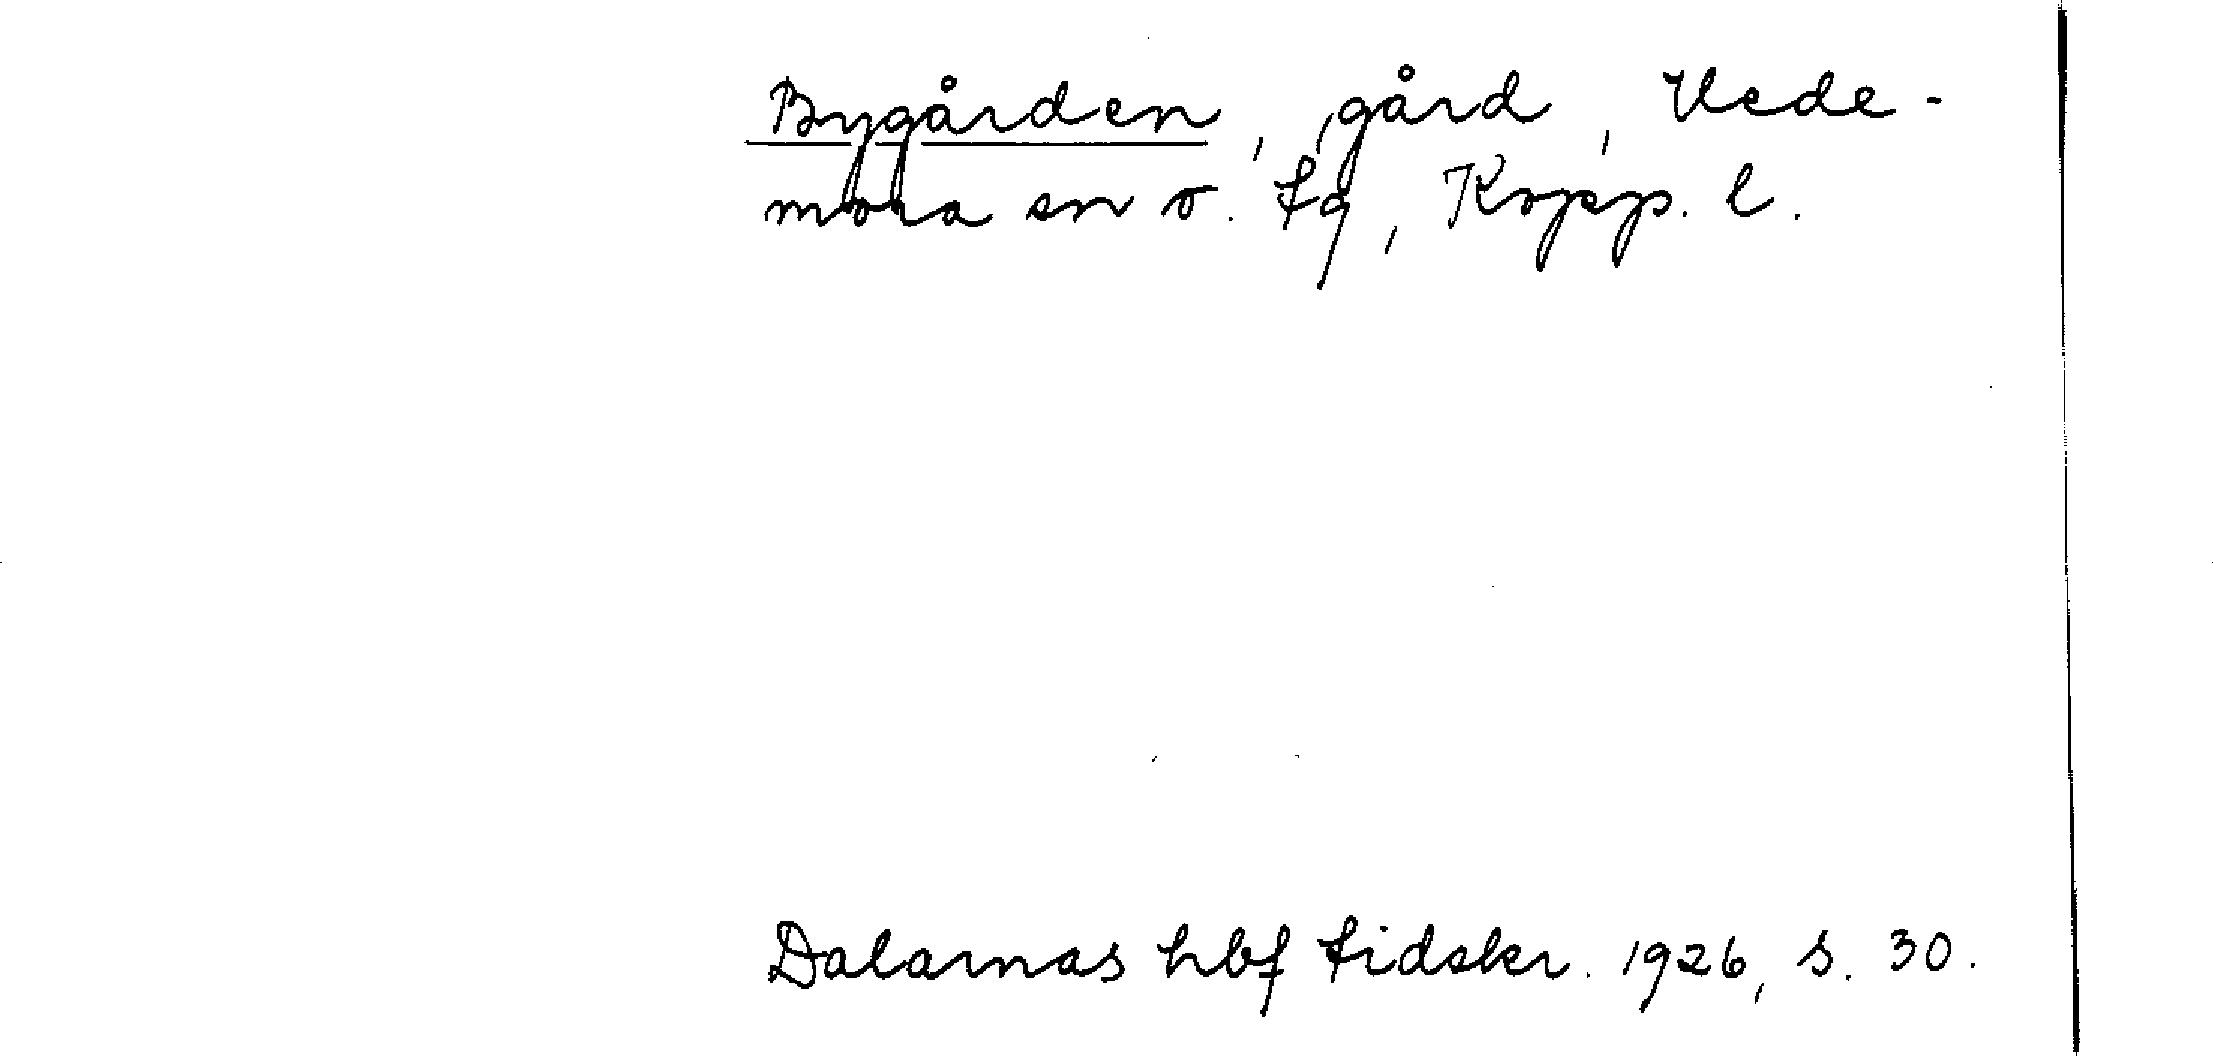 Bygården, gård, Vede-
mora sn o. tg, Kopp. l.
Dalarnas hbf tidskr. 1926, s. 30.